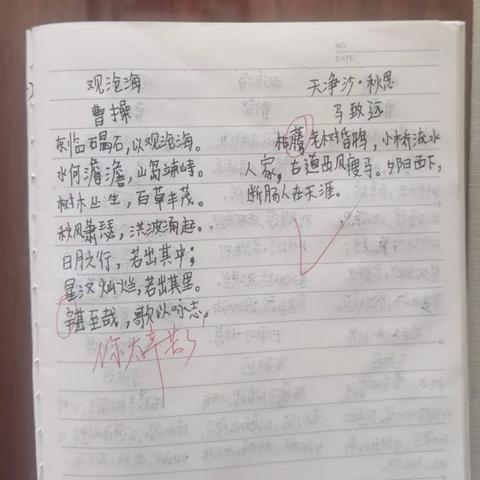 NO.
DATE.
观沧海
曹操
东临碣石，以观沧海。
水何澹澹，山岛竦峙。
树木丛生，百草丰茂。
秋风萧瑟，洪波涌起。
日月之行，若出其中；
星汉灿烂，若出其里。
幸甚至哉，歌以咏志。
你太辛苦了
天净沙·秋思
马致远
枯藤老树昏鸦，小桥流水
人家，古道西风瘦马。夕阳西下，
断肠人在天涯。